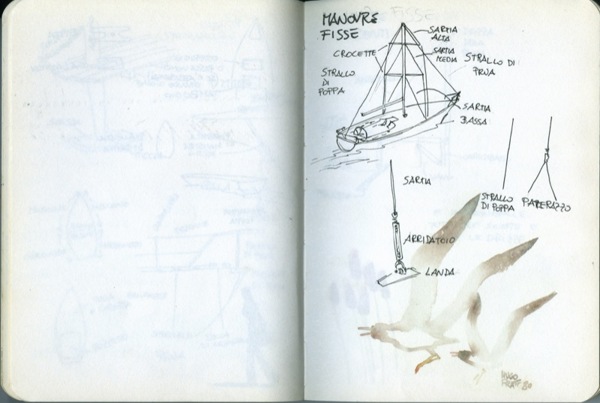 MANOVRE
FISSE
SARTIA
ALTA
CROCETTE
SARTIA
MEDIA
STRALLO DI
PRUA
STRALLO
DI
POPPA
SARTIA
BASSA
SARTIA
STRALLO
DI POPPA
PATERAZZO
ARRIDATOIO
LANDA
HUGO
PRATT 80